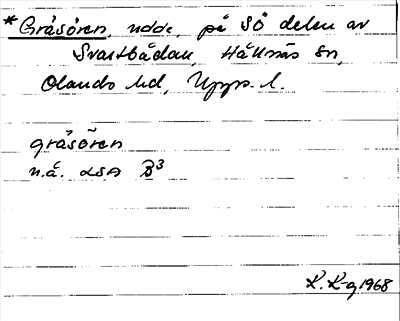 *Gråsören, udde, på SÖ delen av
Svartbådan, Hållnäs sn,
Olands hd, Upps. l.
gråsören
n.å. LSA B³
K. K-g 1968